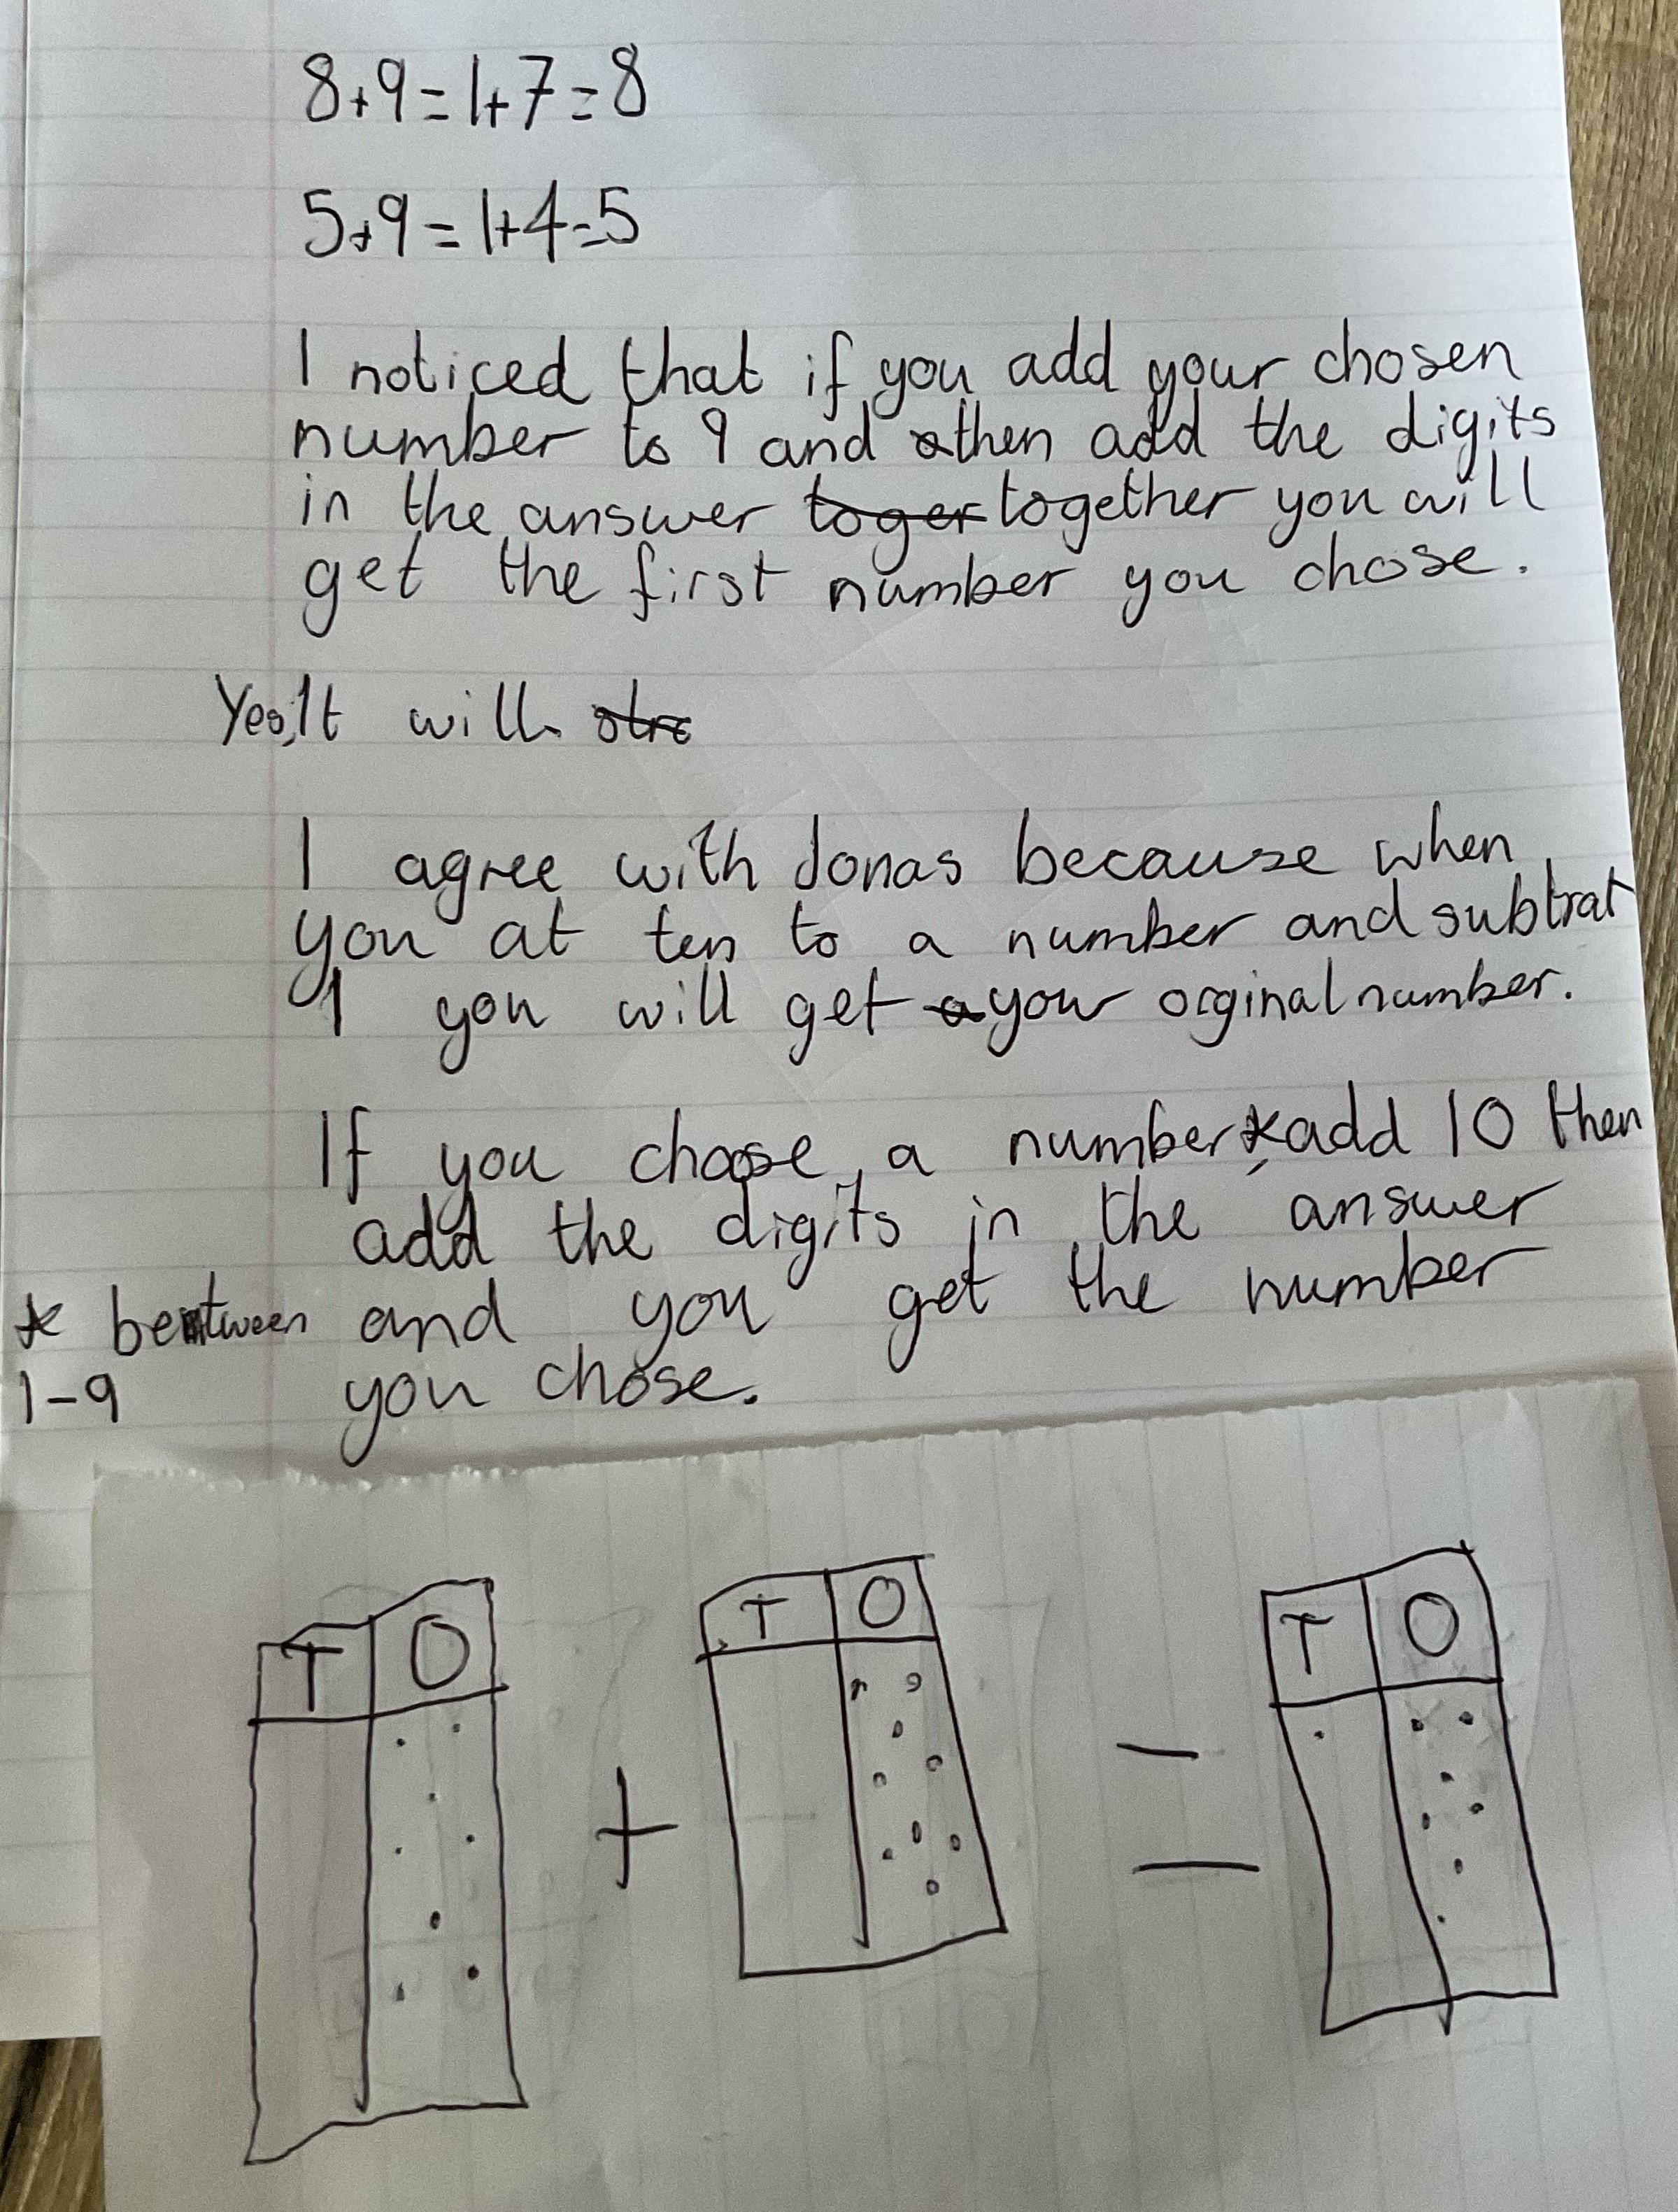 8+9=1+7=8
5+9=1+4=5
I noticed that if you add your chosen
number to 9 and then add the digits
in the answer toger together you will
get the first number you chose.
Yes, It will.
I agree with Jonas because when
you at ten to a number and subtrat
1 you will get a your orginal number.
If you choose a number*, add 10 then
add the digits in the answer
* between and you get the number
1-9 you chose.
T O + T O = T O